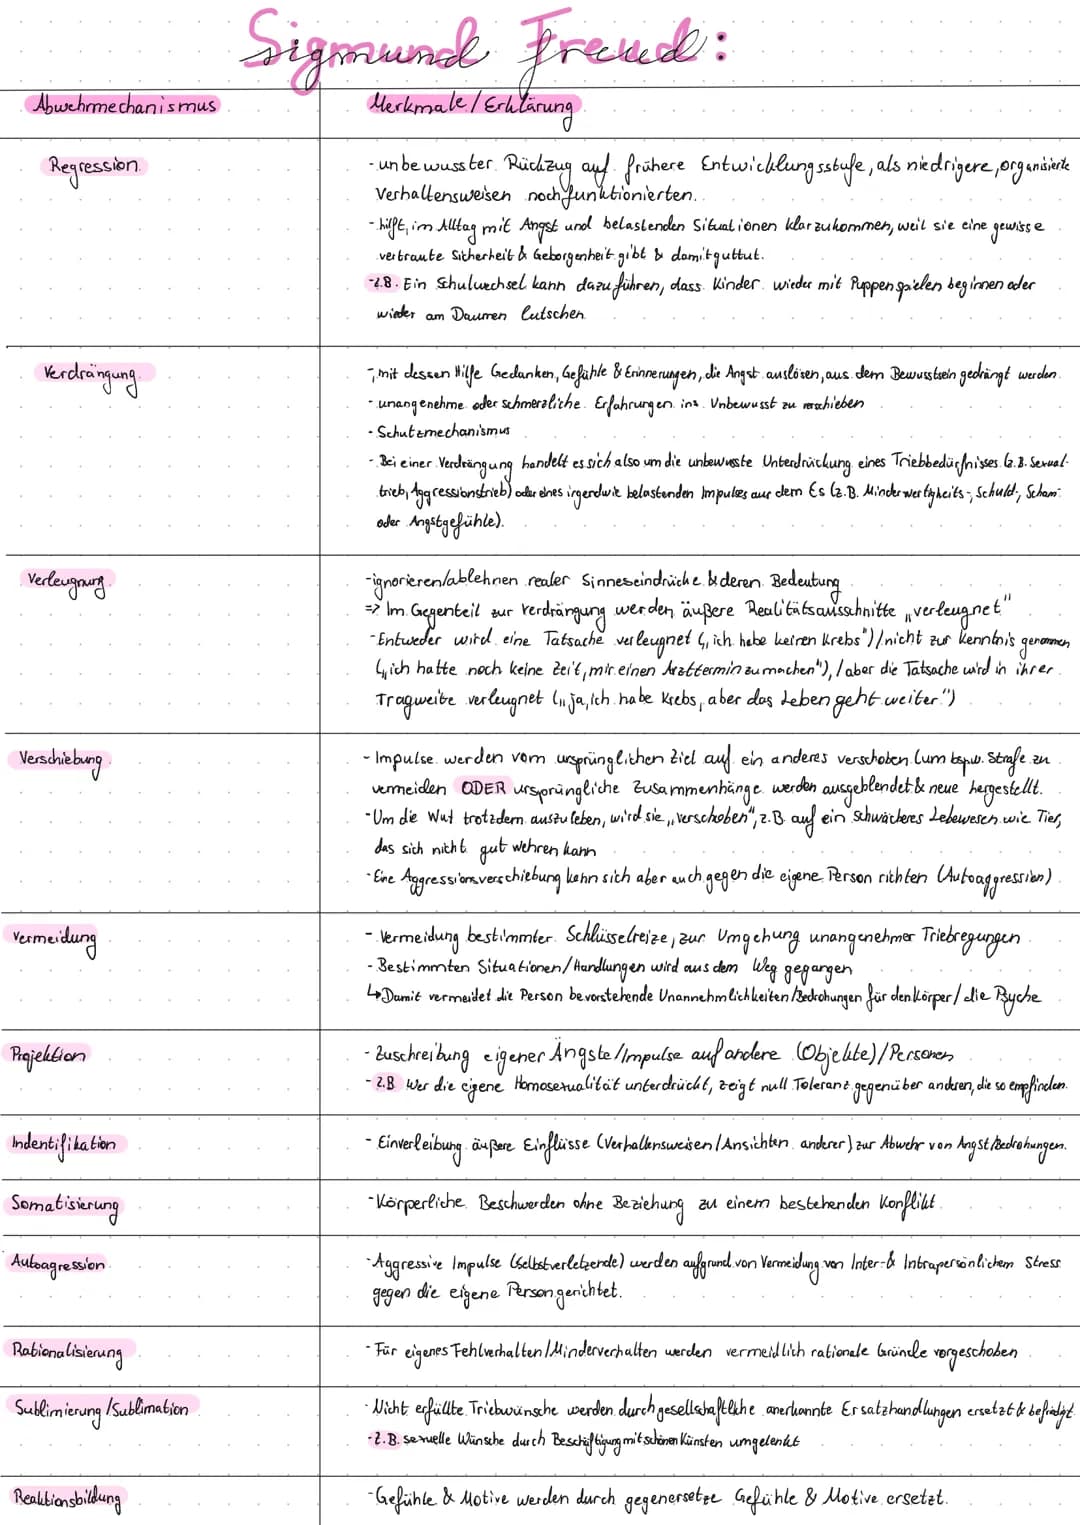 Sigmund Freud:
Abwehrmechanismus
Merkmale/Erklärung
Regression
- unbewusster Rückzug auf frühere Entwicklungsstufe, als niedrigere, organisierte
Verhaltensweisen noch funktionierten.
- hilft, im Alltag mit Angst und belastenden Situationen klarzukommen, weil sie eine gewisse
vertraute Sicherheit & Geborgenheit gibt & damit guttut.
- z.B. Ein Schulwechsel kann dazu führen, dass Kinder wieder mit Puppen spielen beginnen oder
wieder am Daumen lutschen
Verdrängung
-, mit dessen Hilfe Gedanken, Gefühle & Erinnerungen, die Angst auslösen, aus dem Bewusstsein gedrängt werden.
- unangenehme oder schmerzliche Erfahrungen ins Unbewusst zu verschieben
- Schutzmechanismus
- Bei einer Verdrängung handelt es sich also um die unbewusste Unterdrückung eines Triebbedürfnisses (z.B. Sexual-
trieb, Aggressionstrieb) oder eines irgendwie belastenden Impulses aus dem Es (z.B. Minderwertigkeits-, Schuld-, Scham-
oder Angstgefühle).
Verleugnung
- ignorieren/ablehnen realer Sinneseindrücke & deren Bedeutung
=> Im Gegenteil zur Verdrängung werden äußere Realitätsausschnitte „verleugnet"
- Entweder wird eine Tatsache verleugnet („ich habe keinen Krebs")/nicht zur Kenntnis genommen
(„ich hatte noch keine Zeit, mir einen Arzttermin zu machen"), / aber die Tatsache wird in ihrer
Tragweite verleugnet („ja, ich habe Krebs, aber das Leben geht weiter.")
Verschiebung
- Impulse werden vom ursprünglichen Ziel auf ein anderes verschoben (um bspw. Strafe zu
vermeiden ODER ursprüngliche Zusammenhänge werden ausgeblendet & neue hergestellt.
- Um die Wut trotzdem auszuleben, wird sie „verschoben", z.B. auf ein schwächeres Lebewesen wie Tier,
das sich nicht gut wehren kann
- Eine Aggressionsverschiebung kann sich aber auch gegen die eigene Person richten (Autoaggression)
Vermeidung
- Vermeidung bestimmter Schlüsselreize, zur Umgehung unangenehmer Triebregungen
- Bestimmten Situationen/Handlungen wird aus dem Weg gegangen
↳ Damit vermeidet die Person bevorstehende Unannehmlichkeiten/Bedrohungen für den Körper/ die Psyche
Projektion
- Zuschreibung eigener Ängste/Impulse auf andere (Objekte)/Personen
- z.B Wer die eigene Homosexualität unterdrückt, zeigt null Toleranz gegenüber anderen, die so empfinden.
Indentifikation
- Einverleibung äußere Einflüsse (Verhaltensweisen/Ansichten anderer) zur Abwehr von Angst/Bedrohungen.
Somatisierung
- Körperliche Beschwerden ohne Beziehung zu einem bestehenden Konflikt
Autoagression
- Aggressive Impulse (selbstverletzende) werden aufgrund von Vermeidung von Inter- & Intrapersönlichem Stress
gegen die eigene Person gerichtet.
Rationalisierung
- Für eigenes Fehlverhalten/Minderverhalten werden vermeidlich rationale Gründe vorgeschoben
Sublimierung/Sublimation
- Nicht erfüllte Triebwünsche werden durch gesellschaftliche anerkannte Ersatzhandlungen ersetzt & befriedigt
- z.B. sexuelle Wünsche durch Beschäftigung mit schönen Künsten umgelenkt
Reaktionsbildung
- Gefühle & Motive werden durch gegenersetze Gefühle & Motive ersetzt.